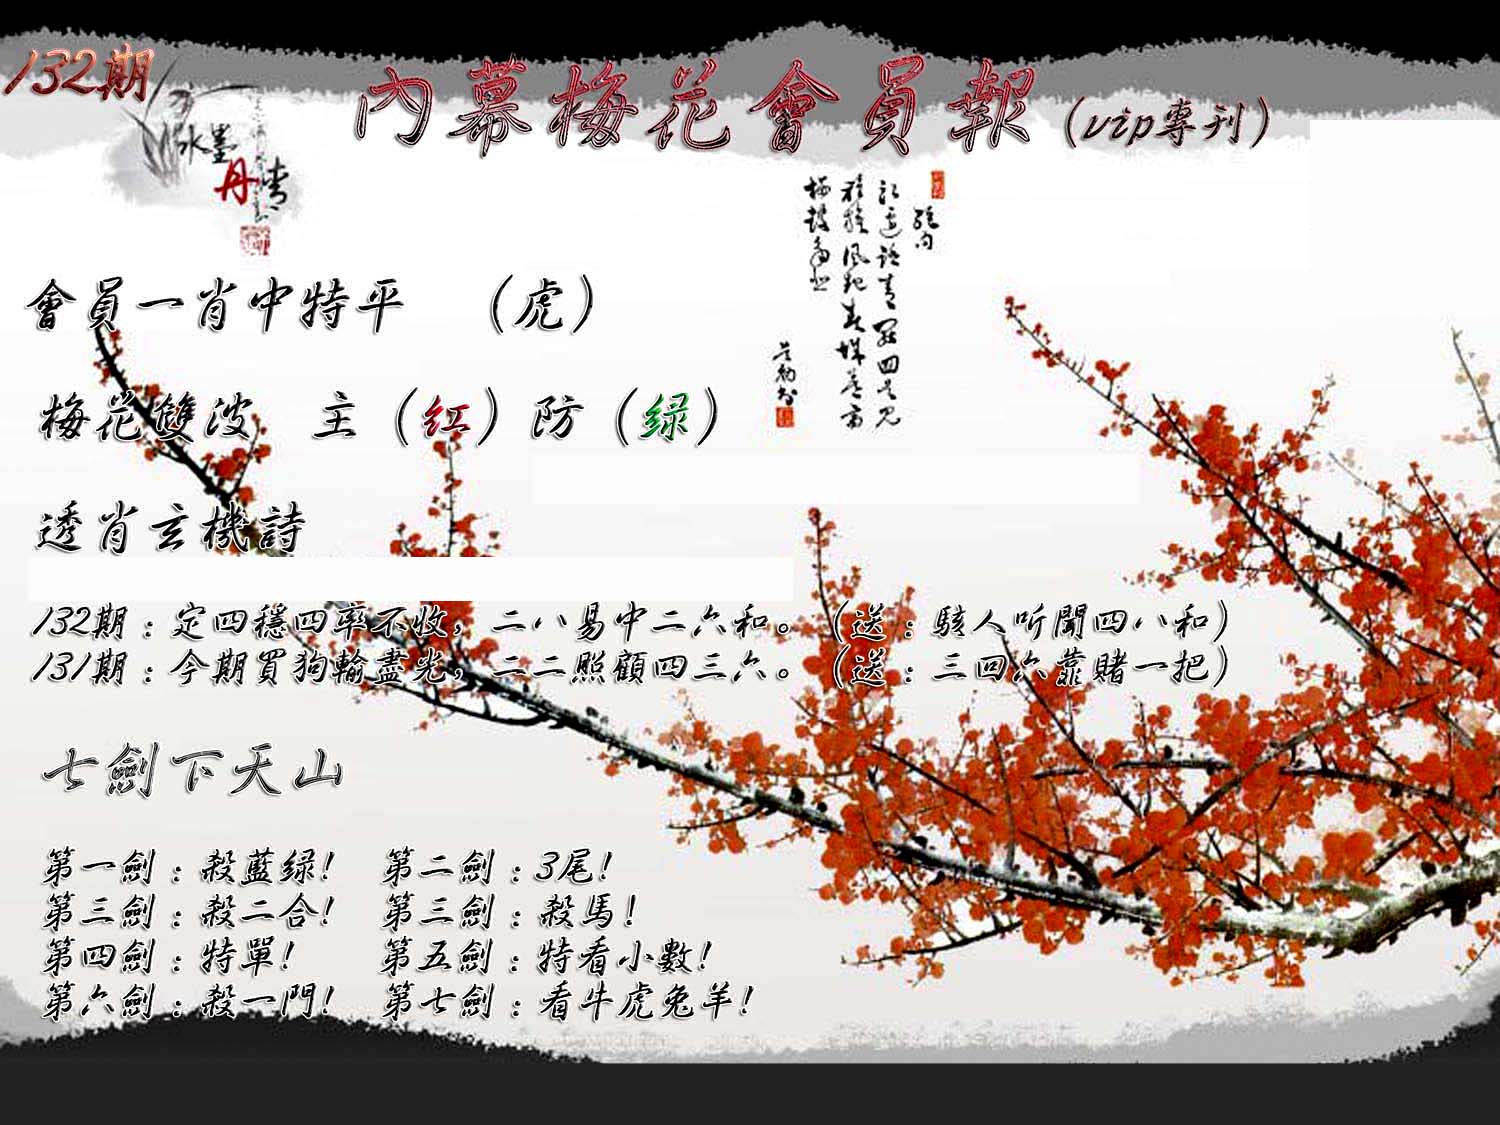 132期
內幕梅花會員報（vip專刊）
水墨
丹青
會員一肖中特平　（虎）
梅花雙波　主（红）防（绿）
透肖玄機詩
132期：定四穩四率不收，二八易中二六和。（送：駭人听聞四八和）
131期：今期買狗輸盡光，二二照顧四三六。（送：三回六靠賭一把）
七劍下天山
第一劍：殺藍绿！　第二劍：3尾！
第三劍：殺二合！　第三劍：殺馬！
第四劍：特單！　第五劍：特看小數！
第六劍：殺一門！　第七劍：看牛虎兔羊！